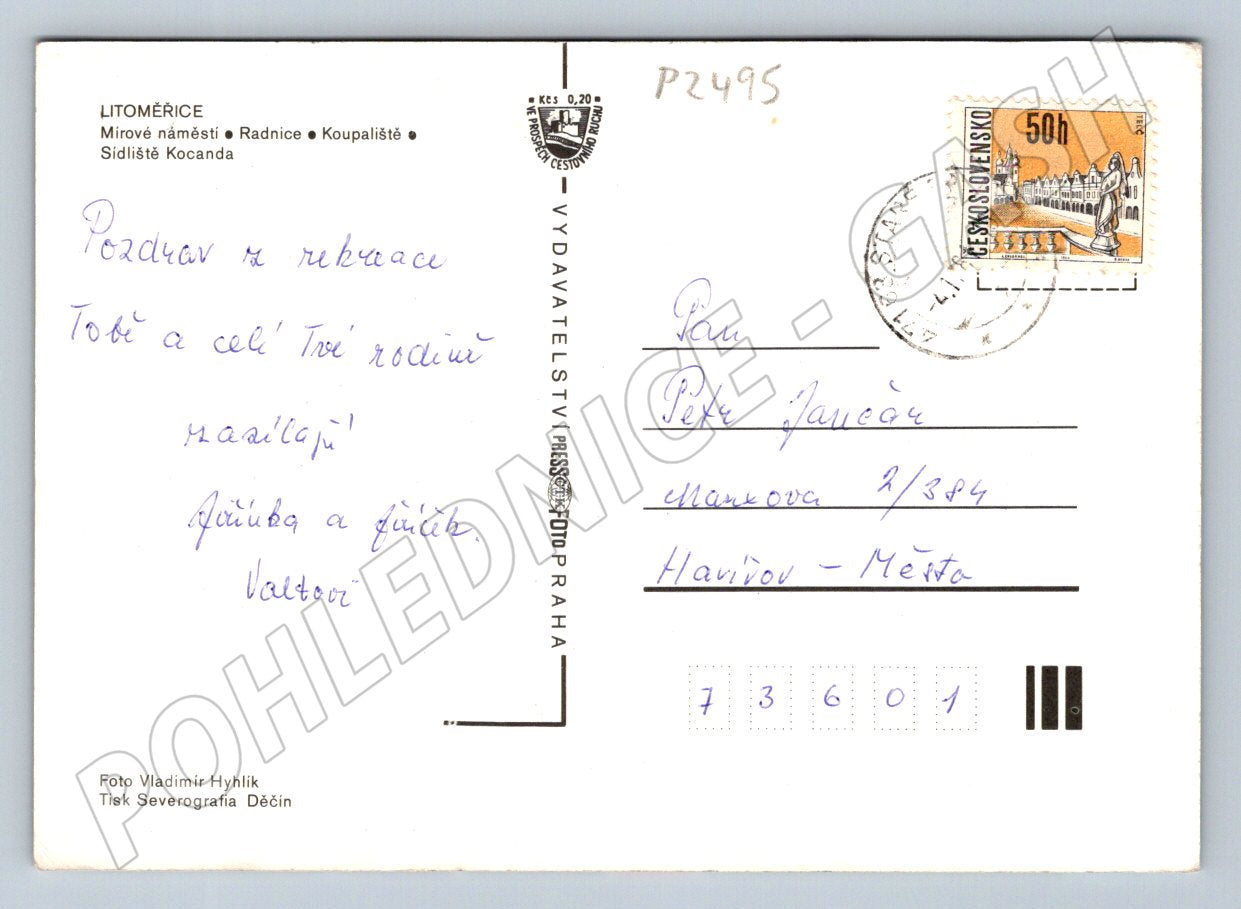 LITOMĚŘICE
Mírové náměstí ● Radnice ● Koupaliště ●
Sídliště Kocanda
Pozdrav z rekreace
Tobě a celé Tvé rodině
zasílají
Jiřinka a Jiříček
Valtovi
Foto Vladimír Hyhlík
Tisk Severografia Děčín
Kčs 0,20
VE PROSPĚCH CESTOVNÍHO RUCHU
VYDAVATELSTVÍ PRESSFOTO PRAHA
P2495
ČESKOSLOVENSKO
50h
TELČ
471
Pan
Petr Jančár
Marxova 2/384
Havířov - Město
73601
POHLEDNICE - GASH